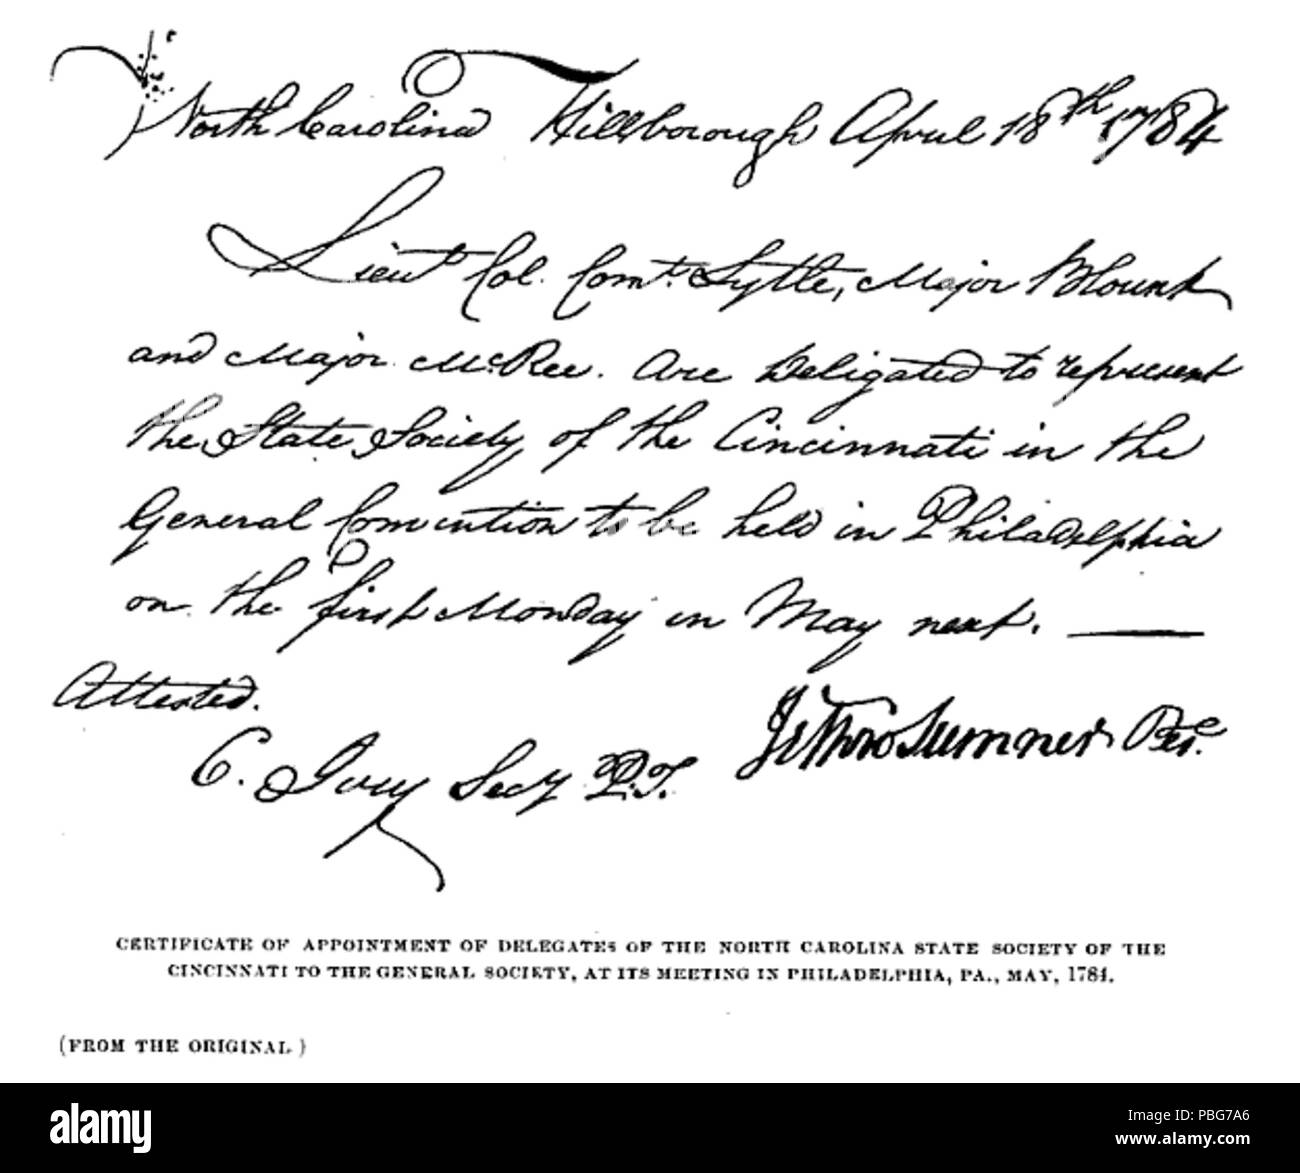 North Carolina Hillsborough April 18th 1784
Lieut Col. Comt. Lytle, Major Blount
and Major McRee. are Deligated to represent
the State Society of the Cincinnati in the
General Convention to be held in Philadelphia
on the first Monday in May next.
Attested.
Jethro Sumner Pres.
C. Ivey Secy P.T.
CERTIFICATE OF APPOINTMENT OF DELEGATES OF THE NORTH CAROLINA STATE SOCIETY OF THE
CINCINNATI TO THE GENERAL SOCIETY, AT ITS MEETING IN PHILADELPHIA, PA., MAY, 1784.
(FROM THE ORIGINAL)
alamy
Image ID: PBG7A6
www.alamy.com